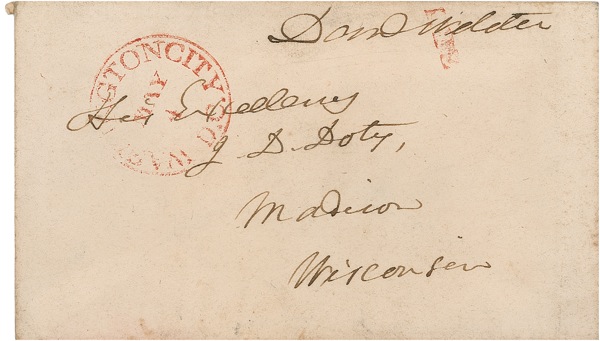 Danl Webster
FREE
WASHINGTON CITY D.C.
MAY
His Excellency
J. D. Doty,
Madison
Wisconsin